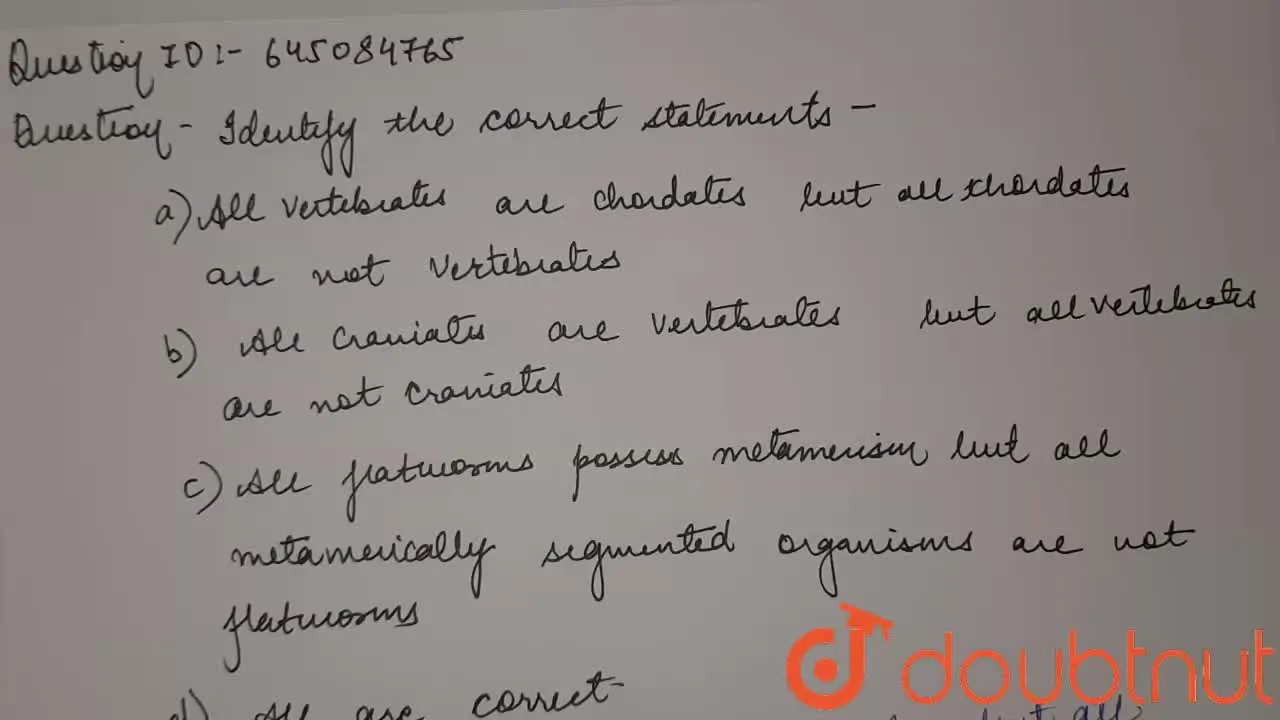 Question ID:- 645084765
Question - Identify the correct statements -
a) All vertebrates are chordates but all chordates
are not vertebrates
b) All craniates are vertebrates but all vertebrates
are not craniates
c) All flatworms possess metamerism but all
metamerically segmented organisms are not
flatworms
doubtnut
d) All are correct
but all